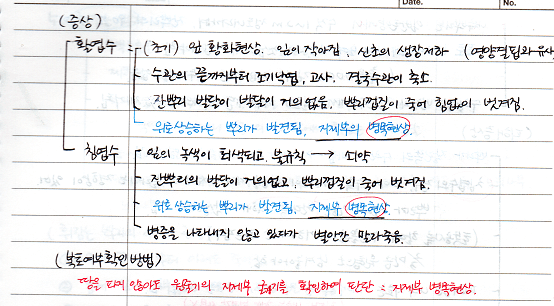 Date. No.
(증상)
활엽수 - (초기) 잎 황화현상. 잎이 작아짐, 신초의 생장저하 (영양결핍과 유사
- 수관의 끝가지부터 조기낙엽, 고사. 결국수관이 축소.
- 잔뿌리 발달이 발달이 거의없음, 뿌리껍질이 죽어 힘없이 벗겨짐.
위로상승하는 뿌리가 발견됨, 지제부의 병목현상.
침엽수 - 잎의 녹색이 퇴색되고, 불규칙 → 쇠약
- 잔뿌리의 발달이 거의없고, 뿌리껍질이 죽어 벗겨짐.
위로상승하는 뿌리가 발견됨, 지제부 병목현상.
병증을 나타내지 않고 있다가 별안간 말라죽음.
(복토여부확인방법)
땅을 파지 않아도 원줄기의 지제부 굵기를 확인하여 판단 : 지제부 병목현상.